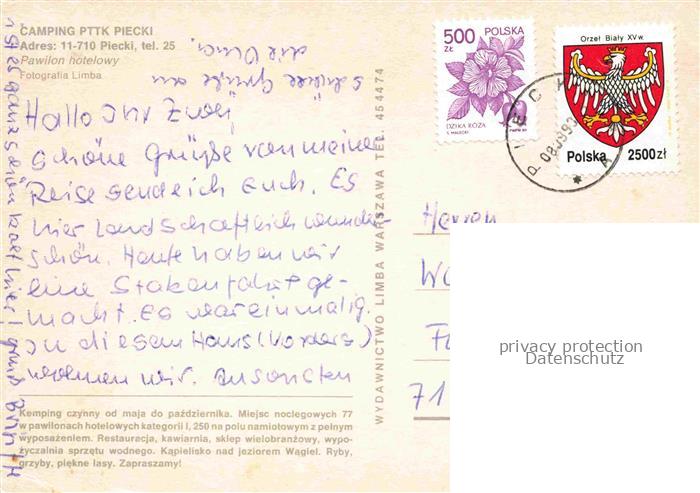 CAMPING PTTK PIECKI
Adres: 11-710 Piecki, tel. 25
Pawilon hotelowy
Fotografia Limba
schöne Grüße an
die
Hallo Ihr Zwei,
schöne Grüße von meiner
Reise sende ich Euch. Es
hier landschaftlich wunder-
schön. Heute haben wir
eine Stakenfahrt ge-
macht. Es war einmalig.
In diesem Haus (Vorders)
wohnen wir. Ansonsten
ist es ganz schön kalt hier!
Kemping czynny od maja do października. Miejsc noclegowych 77
w pawilonach hotelowych kategorii I, 250 na polu namiotowym z pełnym
wyposażeniem. Restauracja, kawiarnia, sklep wielobranżowy, wypo-
życzalnia sprzętu wodnego. Kąpielisko nad jeziorem Wągiel. Ryby,
grzyby, piękne lasy. Zapraszamy!
WYDAWNICTWO LIMBA WARSZAWA TEL. 454474
500 ZŁ
POLSKA
DZIKA RÓŻA
Orzeł Biały XV w.
Polska 2500 zł
PIECKI
Herren
71
privacy protection
Datenschutz